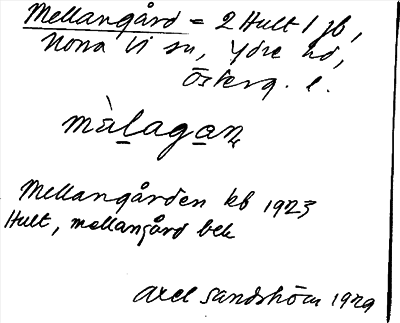 Mellangård = 2 Hult 1 jb,
Norra Vi sn, Ydre hd,
Österg. l.
màlagan,
Mellangården kb 1923
Hult, mellangård bek
Axel Sandström 1929